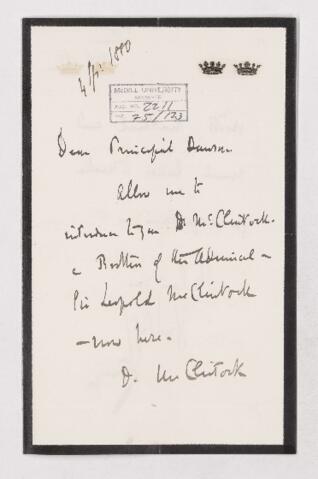 1880
McGILL UNIVERSITY
ARCHIVES
ACC. NO. 2211
REF. 25/123
Dear Principal Dawson
Allow me to
introduce to you Dr. McClintock.
a Brother of the Admiral -
Sir Leopold McClintock
- now here.
D. McClintock